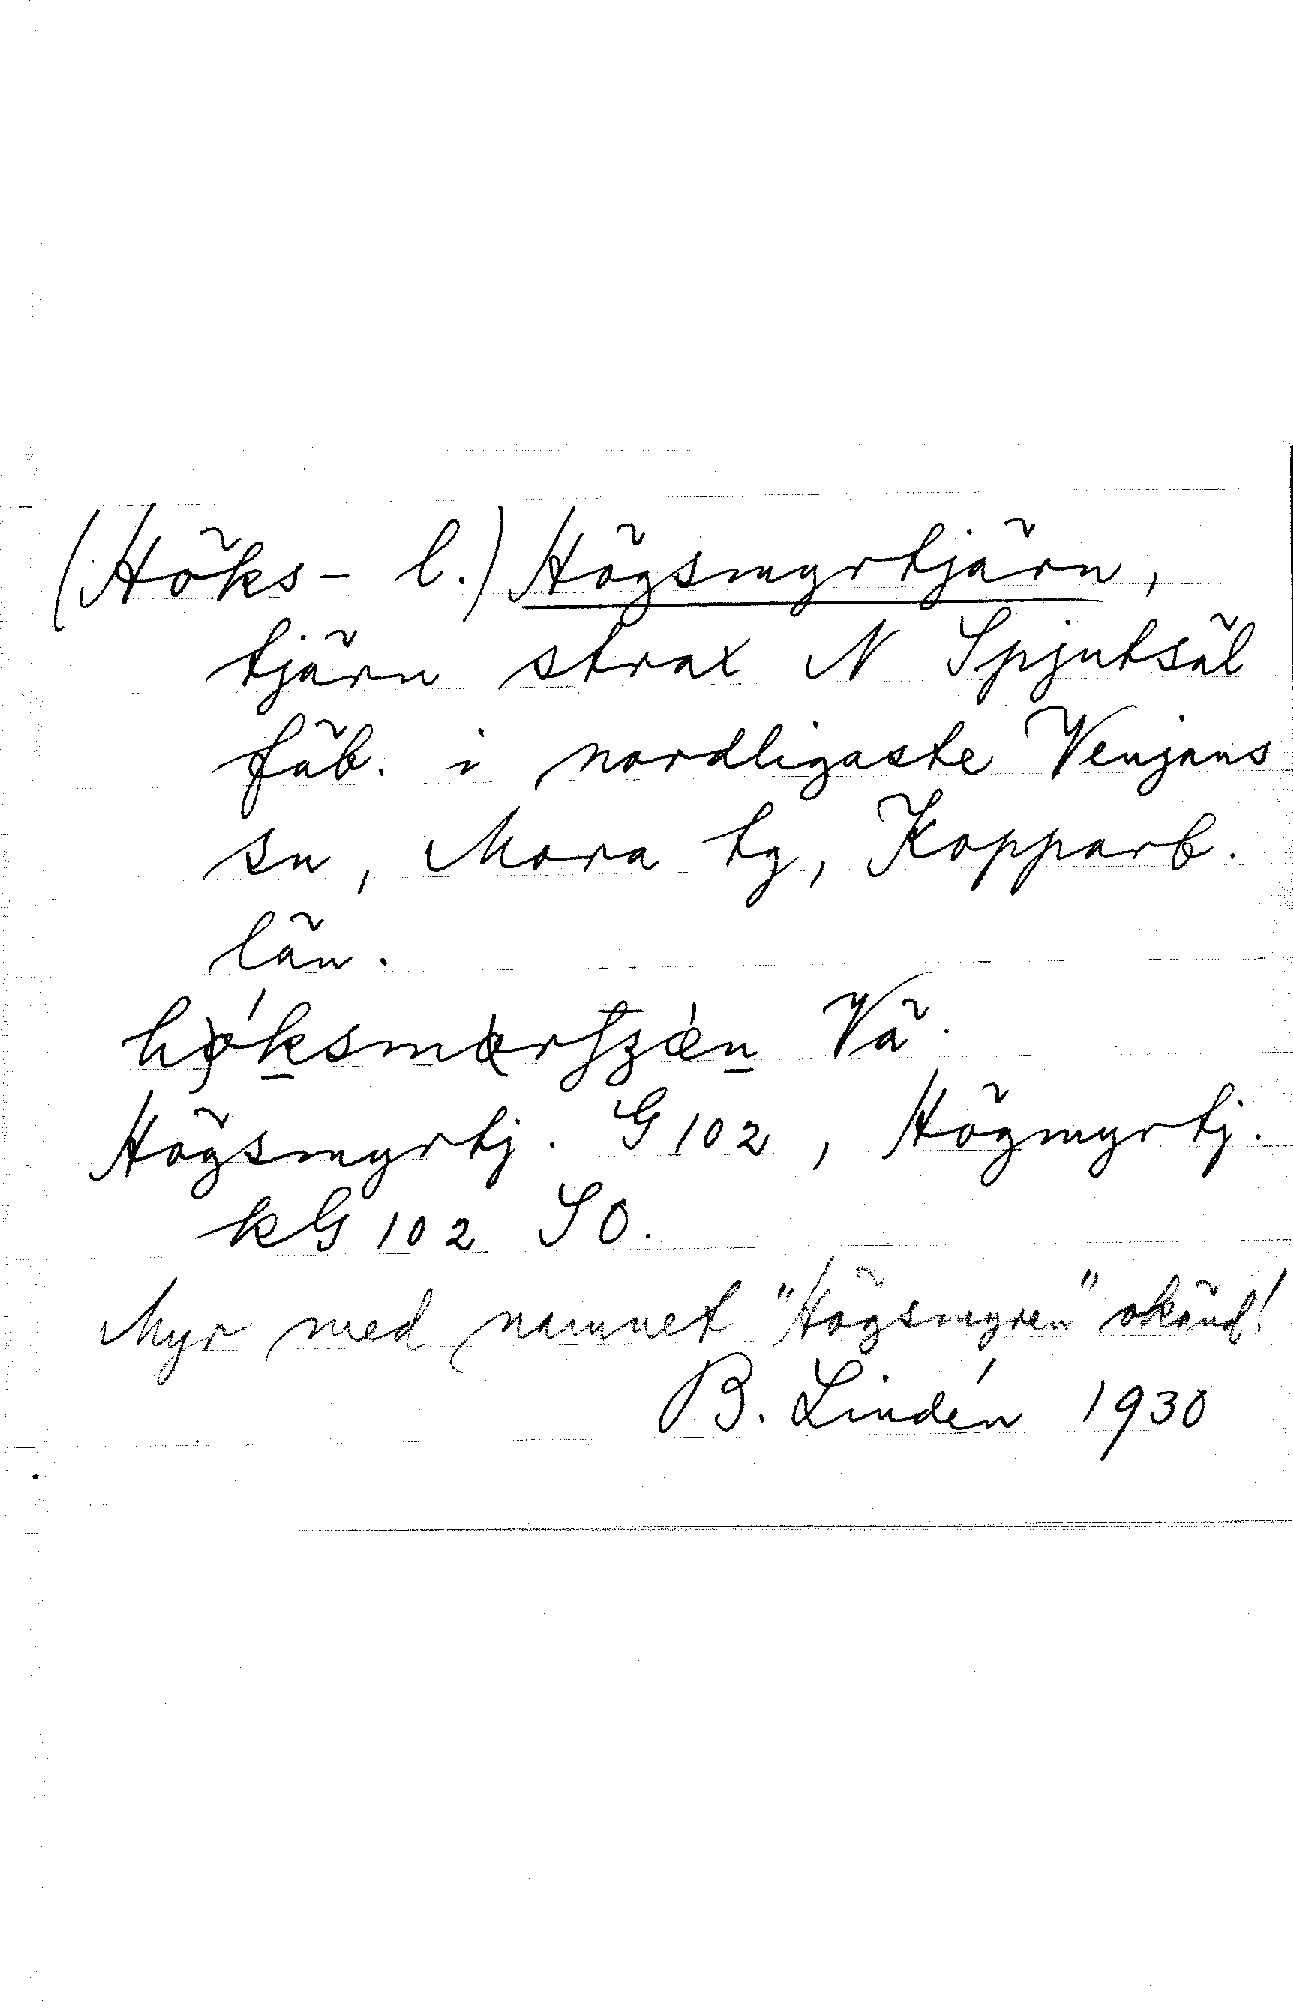 (Höks- l.) Högsmyrtjärn,
tjärn strax N Spjutsäl
fäb. i nordligaste Venjans
sn, Mora tg, Kopparb.
län.
Vä.
Högsmyrtj. G 102, Högmyrtj.
kG 102 SO.
Myr med namnet "Högsmyren" okänd!
B. Lindén 1930